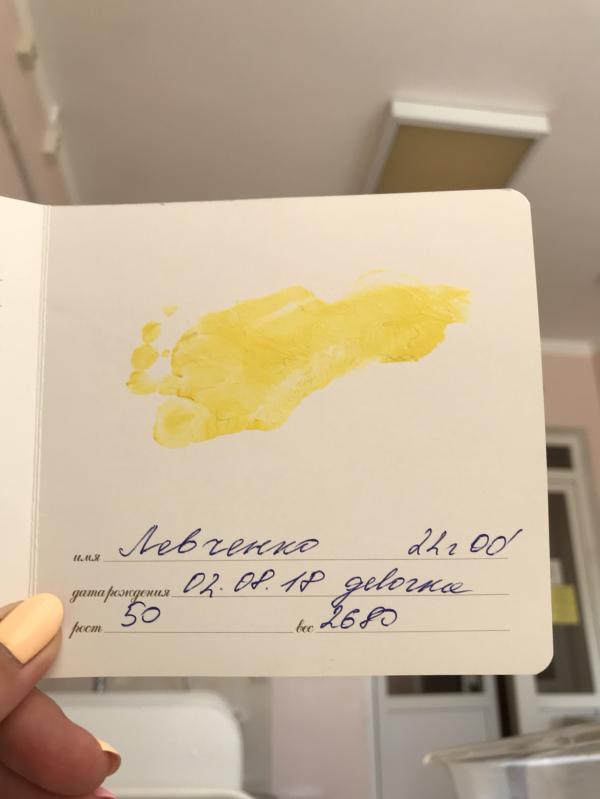 имя Левченко 22ч 00'
дата рождения 02.08.18 девочка
рост 50 вес 2680